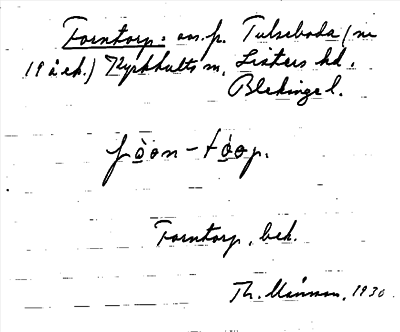 Forntorp: os. p. Tulseboda (nr
19 å ek.) Kyrkhults sn, Listers hd.
Blekinge l.
fòon-tóop.
Forntorp, beb.
Th. Månsson, 1930